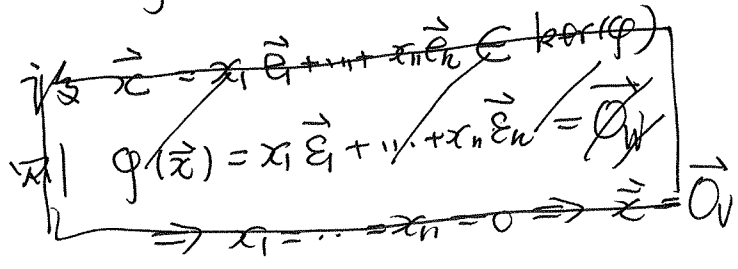 設 $\vec{x} = x_1\vec{e}_1 + \cdots + x_n\vec{e}_n \in \ker(\varphi)$
則 $\varphi(\vec{x}) = x_1\vec{\varepsilon}_1 + \cdots + x_n\vec{\varepsilon}_n = \vec{0}_W$
$\Rightarrow x_1 = \cdots = x_n = 0 \Rightarrow \vec{x} = \vec{0}_V$